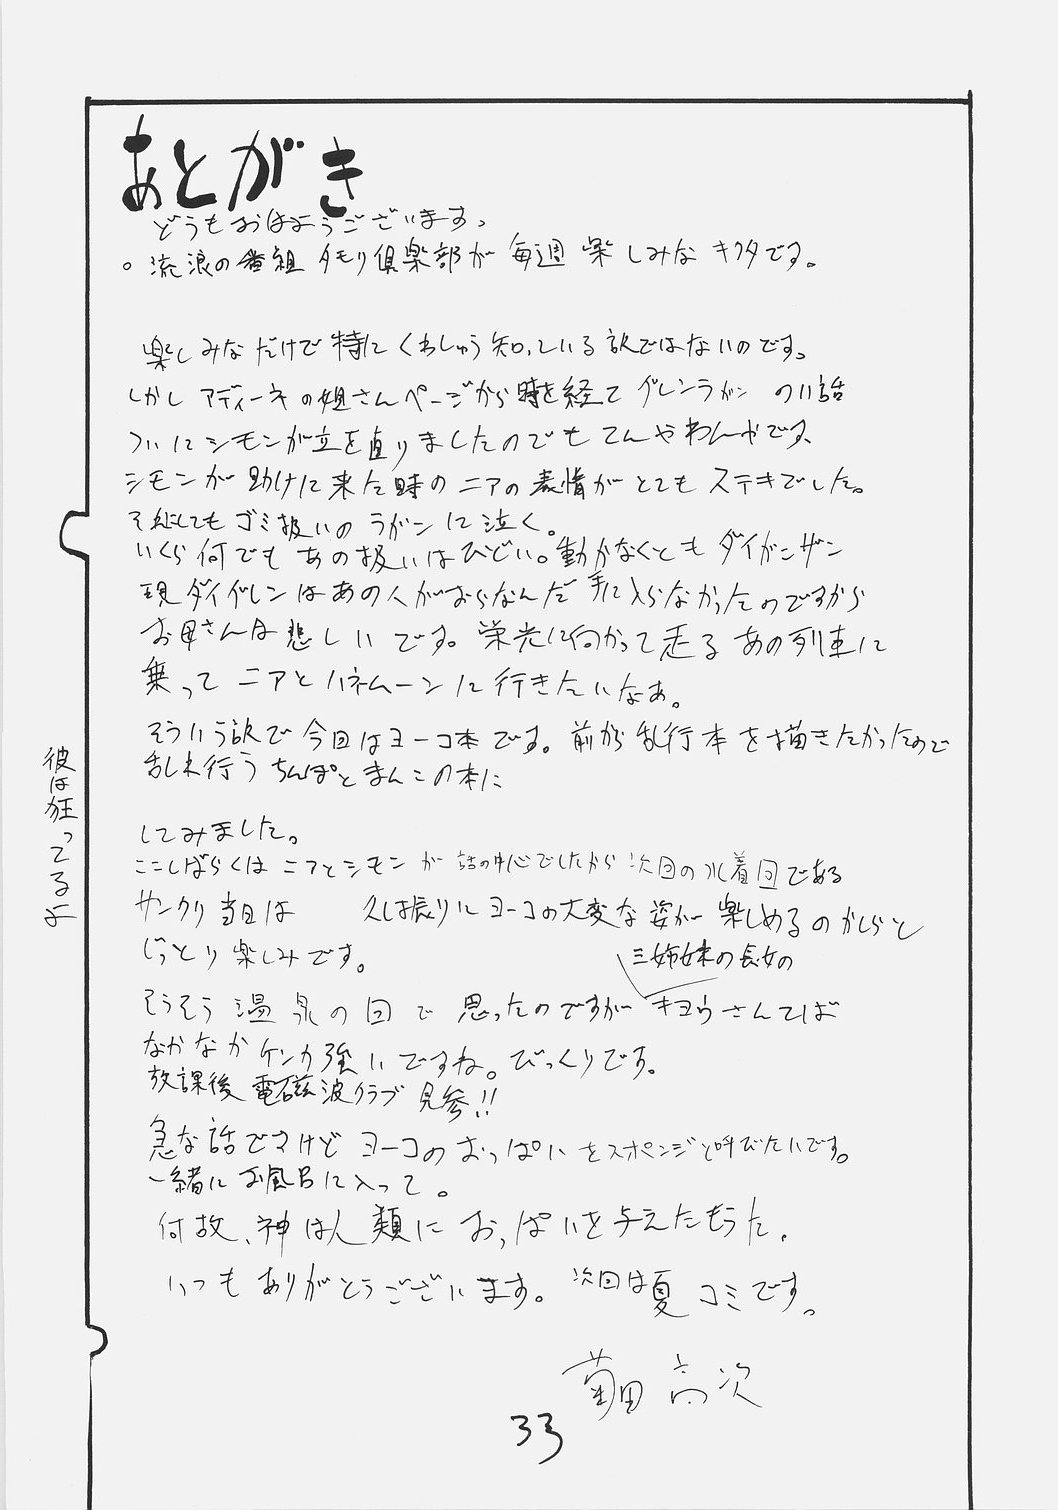 あとがき
どうもおはようございます。
流浪の番組 タモリ倶楽部が 毎週 楽しみな キクタです。
楽しみなだけで 特に くわしゅう 知っている 訳ではないのです。
しかし アディーネの姐さんページから 時を経て グレンラガン の11話
ついにシモンが立ち直りましたのでも てんやわんやです、
シモンが 助けに 来た時の ニアの 表情が とても ステキでした。
それにしても ゴミ扱いの ラガンに泣く。
いくら何でも あの扱いはひどい。動かなくとも ダイガンザン
現ダイグレンはあの人がおらなんだ 手に入らなかったのですから
お母さんは 悲しいです。栄光に向かって 走る あの列車に
乗って ニアとハネムーンに行きたいなぁ。
そういう訳で 今回はヨーコ本です。前から乱行本を描きたかったので
乱れ行う ちんぽとまんこの本に
してみました。
ここしばらくは ニアとシモン が 話の中心でしたから 次回の水着回である
サンクリ当日は 久し振りに ヨーコの大変な姿が 楽しめるのかしらと
じっとり楽しみです。
三姉妹の長女の
そうそう 温泉の回で 思ったのですが キヨウさんてば
なかなか ケンカ強いですね。びっくりです。
放課後 電磁波クラブ 見参!!
急な話ですけど ヨーコのおっぱいをスポンジと呼びたいです。
一緒にお風呂に入って。
何故、神は人類に おっぱいを与えたもうた。
いつも ありがとうございます。次回は夏コミです。
菊田 高次
33
彼は狂ってるよ